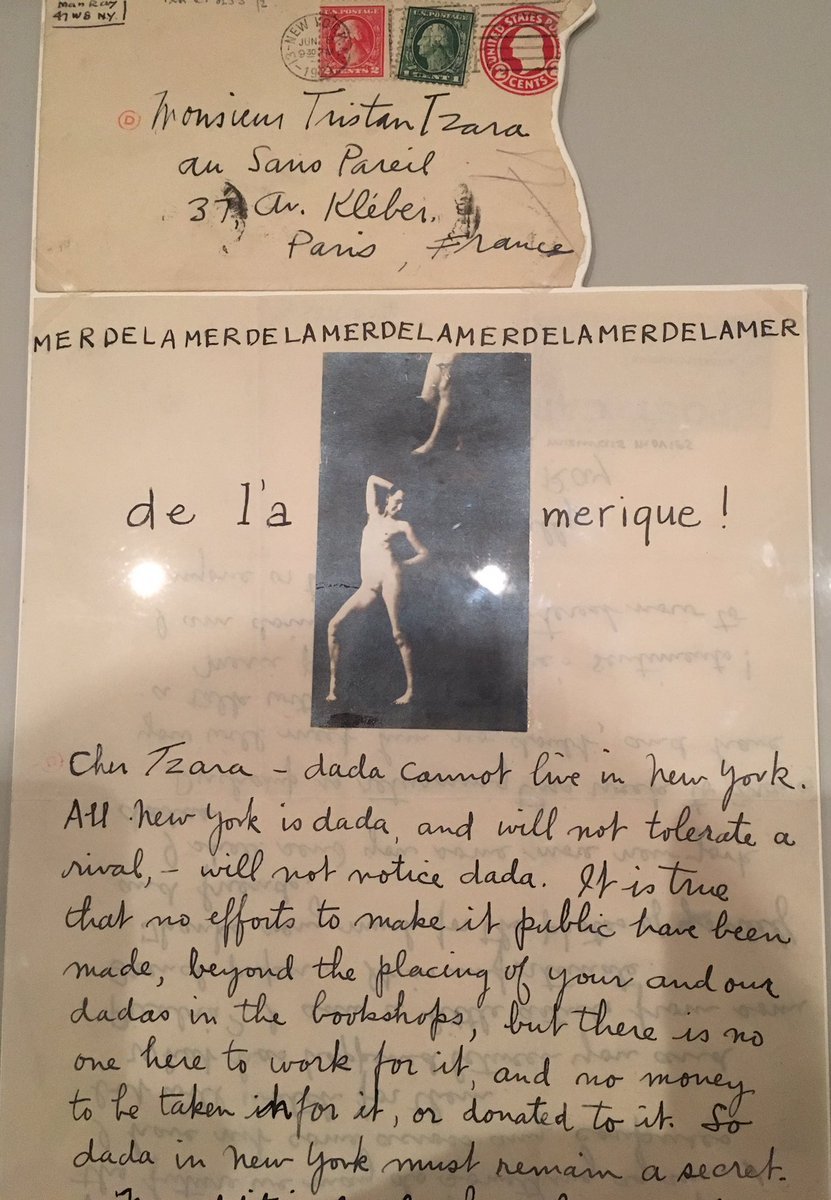 Man Ray
47 W 8 NY.
NEW YORK
JUN
U.S. POSTAGE
2 CENTS 2
U.S. POSTAGE
1 CENT 1
UNITED STATES
2 CENTS
D
Monsieur Tristan Tzara
au Sans Pareil
37, Av. Kléber.
Paris, France
MERDELAMERDELAMERDELAMERDELAMERDELAMER
de l'a merique!
Cher Tzara – dada cannot live in New York.
All New York is dada, and will not tolerate a
rival, – will not notice dada. It is true
that no efforts to make it public have been
made, beyond the placing of your and our
dadas in the bookshops, but there is no
one here to work for it, and no money
to be taken in for it, or donated to it. So
dada in New York must remain a secret.